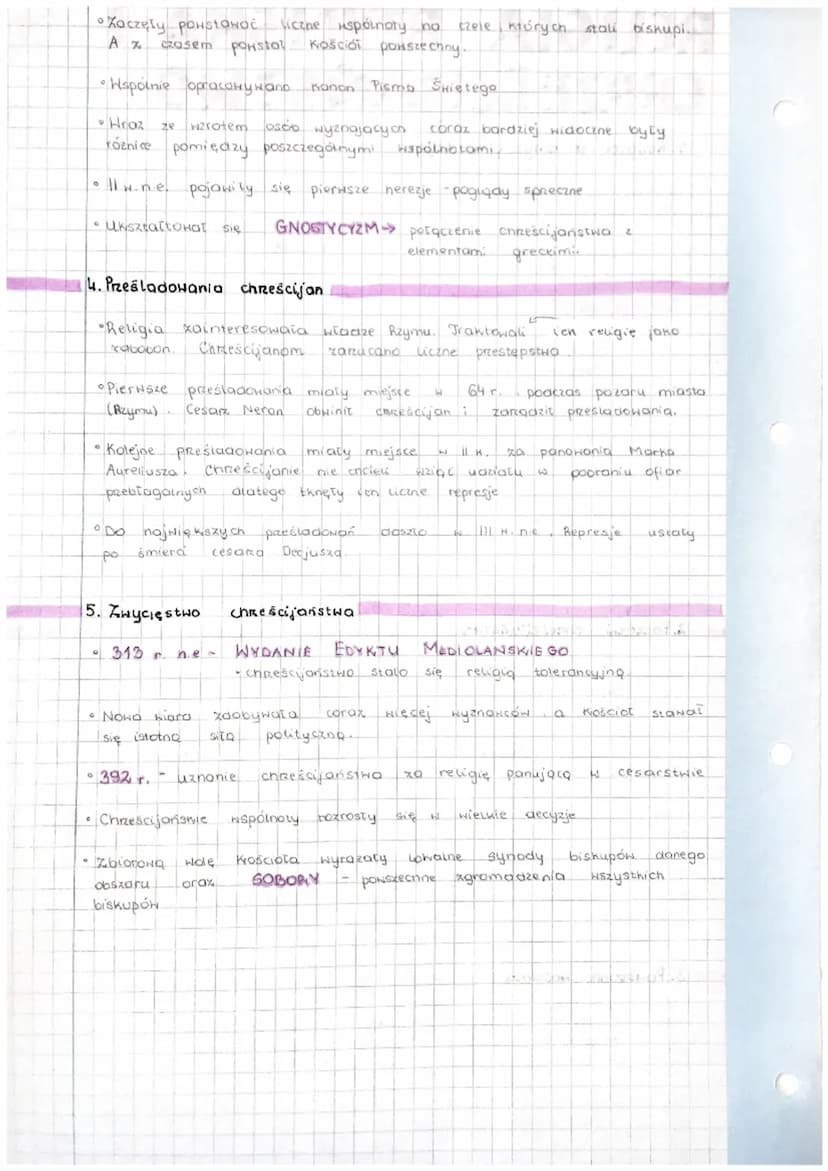 Zaczęły powstawać liczne wspólnoty na czele, których stali biskupi.
A z czasem powstał Kościół powszechny.
Wspólnie opracowywano Kanon Pisma Świętego
Wraz ze wzrotem osób wyznających coraz bardziej widoczne były
różnice pomiędzy poszczególnymi wspólnotami
II w.n.e. pojawiły się pierwsze herezje - poglądy sprzeczne
Ukształtował się GNOSTYCYZM → połączenie chrześcijaństwa z
elementami greckimi.
4. Prześladowania chrześcijan
Religia zainteresowała władze Rzymu. Traktowali ten religię jako
zabobon. Chrześcijanom zarzucano liczne przestępstwa.
Pierwsze prześladowania miały miejsce w 64 r. podczas pożaru miasta
(Rzymu). Cesarz Neron obwinił chrześcijan i zarządził prześladowania.
Kolejne prześladowania miały miejsce w II w. za panowania Marka
Aureliusza. Chrześcijanie nie chcieli wziąć udziału w pobraniu ofiar
przebłagalnych dlatego tknęły ich liczne represje
Do największych prześladowań doszło w III w. n.e. Represje ustały
po śmierci cesarza Decjusza
5. Zwycięstwo chrześcijaństwa
313 r. n.e - WYDANIE EDYKTU MEDIOLAŃSKIEGO
- chrześcijaństwo stało się religią tolerancyjną
Nowa wiara zdobywała coraz więcej wyznawców, a Kościół stawał
się istotną siłą polityczną.
392 r. - uznanie chrześcijaństwa za religię panującą w cesarstwie
Chrześcijańskie wspólnoty rozrosły się w wielkie diecyzje
Zbiorową wolę Kościoła wyrażały lokalne synody biskupów danego
obszaru oraz SOBORY - powszechne zgromadzenia wszystkich
biskupów